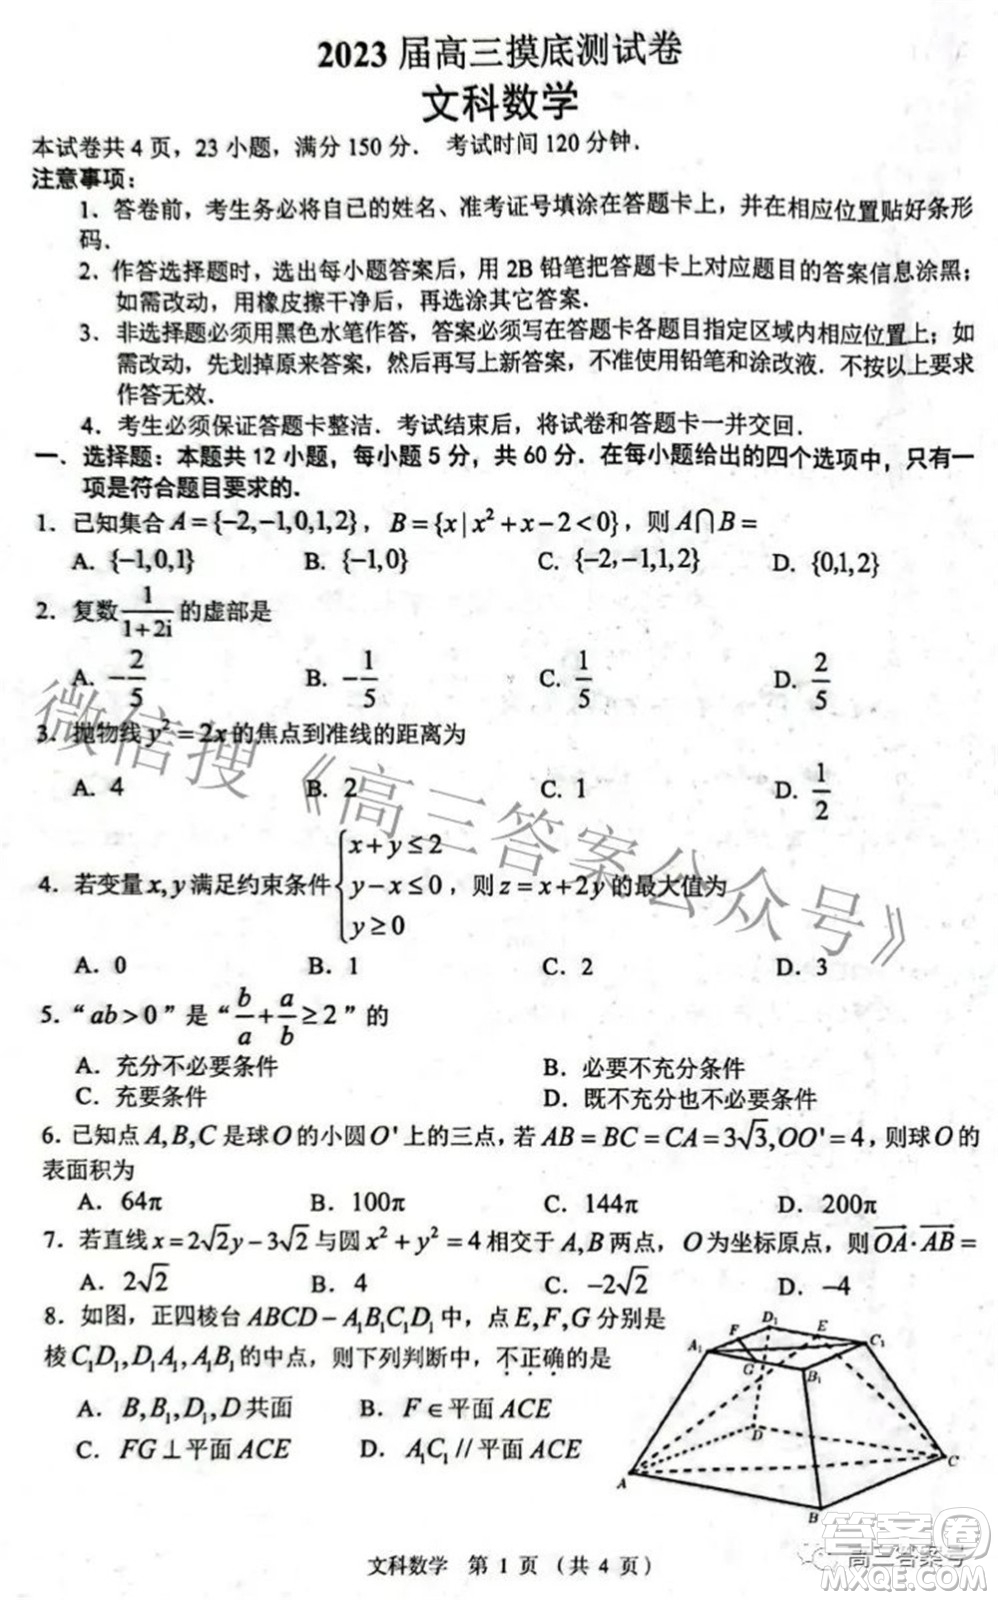 2023 届高三摸底测试卷
文科数学
本试卷共 4 页，23 小题，满分 150 分． 考试时间 120 分钟．
注意事项：
1．答卷前，考生务必将自已的姓名、准考证号填涂在答题卡上，并在相应位置贴好条形
码．
2．作答选择题时，选出每小题答案后，用 2B 铅笔把答题卡上对应题目的答案信息涂黑；
如需改动，用橡皮擦干净后，再选涂其它答案．
3．非选择题必须用黑色水笔作答，答案必须写在答题卡各题目指定区域内相应位置上；如
需改动，先划掉原来答案，然后再写上新答案，不准使用铅笔和涂改液．不按以上要求
作答无效．
4．考生必须保证答题卡整洁．考试结束后，将试卷和答题卡一并交回．
一．选择题：本题共 12 小题，每小题 5 分，共 60 分．在每小题给出的四个选项中，只有一
项是符合题目要求的．
1．已知集合 A={-2,-1,0,1,2}，B={x|x²+x-2<0}，则 A∩B=
A．{-1,0,1} B．{-1,0} C．{-2,-1,1,2} D．{0,1,2}
2．复数 1/(1+2i) 的虚部是
A．-2/5 B．-1/5 C．1/5 D．2/5
3．抛物线 y²=2x 的焦点到准线的距离为
A．4 B．2 C．1 D．1/2
4．若变量 x,y 满足约束条件 {x+y≤2 y-x≤0 y≥0，则 z=x+2y 的最大值为
A．0 B．1 C．2 D．3
5．“ab>0”是“b/a+a/b≥2”的
A．充分不必要条件 B．必要不充分条件
C．充要条件 D．既不充分也不必要条件
6．已知点 A,B,C 是球 O 的小圆 O' 上的三点，若 AB=BC=CA=3√3,OO'=4，则球 O 的
表面积为
A．64π B．100π C．144π D．200π
7．若直线 x=2√2y-3√2 与圆 x²+y²=4 相交于 A,B 两点，O 为坐标原点，则 OA→·AB→=
A．2√2 B．4 C．-2√2 D．-4
8．如图，正四棱台 ABCD-A₁B₁C₁D₁ 中，点 E,F,G 分别是
棱 C₁D₁,D₁A₁,A₁B₁ 的中点，则下列判断中，不正确的是
A．B,B₁,D₁,D 共面 B．F∈平面 ACE
C．FG⊥平面 ACE D．A₁C₁//平面 ACE
D₁ E F C₁ A₁ G B₁ D A C B
微信搜《高三答案公众号》
文科数学 第 1 页（共 4 页）
高三答案号
答案卷